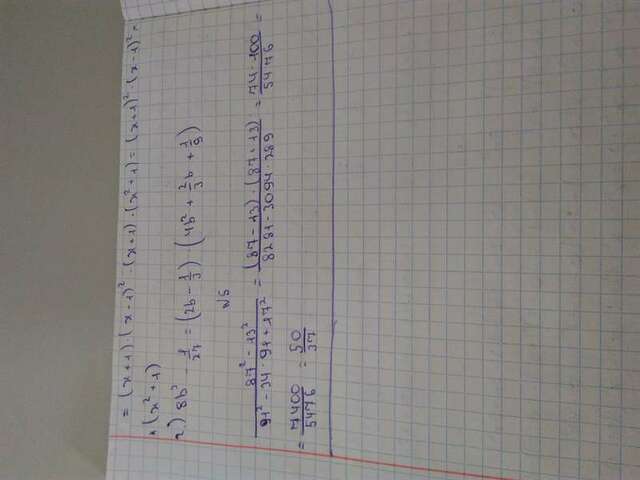 = (x+1)·(x-1)²·(x+1)·(x²+1) = (x+1)²·(x-1)²·
·(x²+1)
2.) 8b³ - 1/27 = (2b - 1/3) (4b² + 2/3b + 1/9)
№5
(87² - 13²)/(91² - 34·91 + 17²) = ((87-13)·(87+13))/(8281-3094·289) = (74·100)/5476 =
= 7400/5476 = 50/37